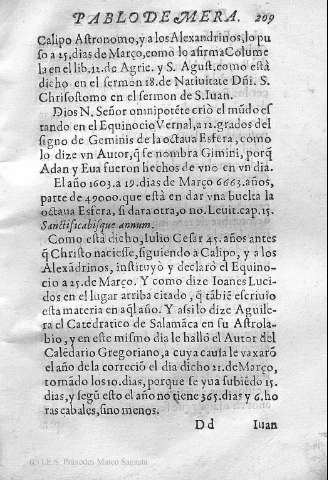 PABLO DE MERA. 209
Calipo Astronomo, y a los Alexandrinos, lo pu
so a 25. dias de Março, como lo afirma Colume
la en el lib. 11. de Agric. y S. Agust. como está
dicho en el sermon 18. de Natiuitate Dñi. S.
Chrisostomo en el sermon de S. Iuan.
Dios N. Señor omnipotẽte criò el mũdo es
tando en el Equinocio Vernal, a 12. grados del
signo de Geminis de la octaua Esfera, como
lo dize vn Autor, q̃ se nombra Gimini, porq̃
Adan y Eua fueron hechos de vno en vn dia.
El año 1603. a 19. dias de Março 6663. años,
parte de 49000. que està en dar vna buelta la
octaua Esfera, si dara otra, o no. Leuit. cap. 25.
Sanctificabisque annum.
Como està dicho, Iulio Cesar 45. años antes
q̃ Christo naciesse, siguiendo a Calipo, y a los
Alexãdrinos, instituyò y declarò el Equino-
cio a 25. de Março. Y como dize Ioanes Luci-
dos en el lugar arriba citado, q̃ tãbiẽ escriuio
esta materia en aq̃l año. Y assi lo dize Aguile-
ra el Catedratico de Salamãca en su Astrola-
bio, y en este mismo dia le hallò el Autor del
Calẽdario Gregoriano, a cuya causa le vaxarõ
el año de la correciõ el dia dicho 21. de Março,
tomãdo los 10. dias, porque se yua subiẽdo 15.
dias, y segũ esto el año no tiene 365. dias y 6. ho
ras cabales, sino menos.
D d Iuan
(c) I.E.S. Práxedes Mateo Sagasta